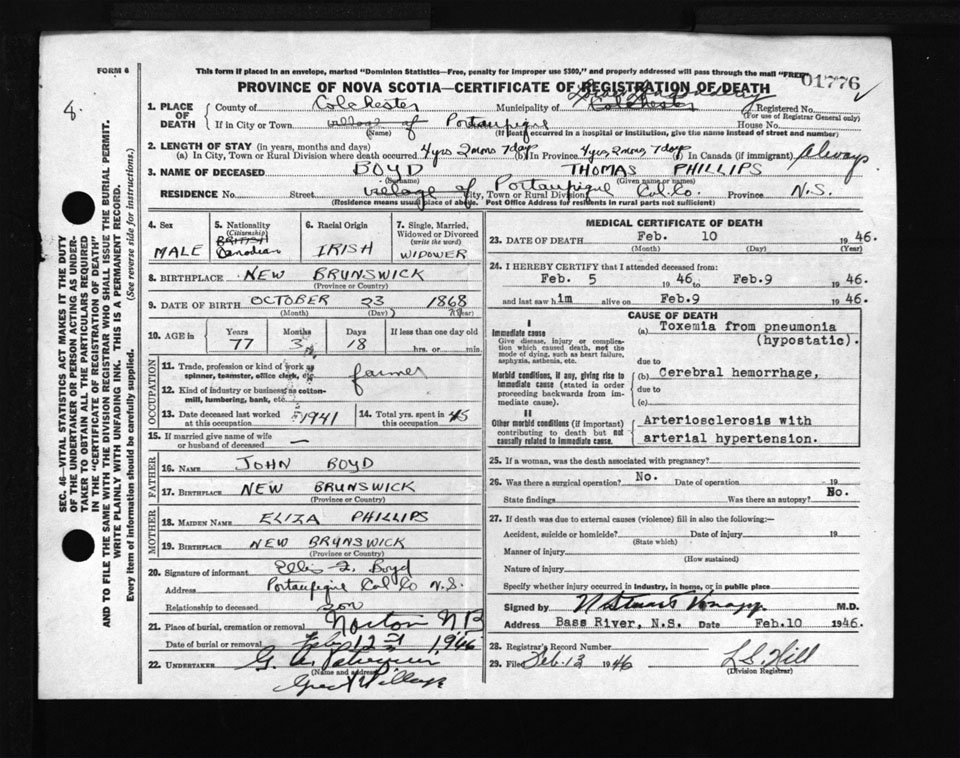 FORM 6
This form if placed in an envelope, marked "Dominion Statistics—Free, penalty for improper use $300," and properly addressed will pass through the mail "FREE"
01776
8.
PROVINCE OF NOVA SCOTIA—CERTIFICATE OF REGISTRATION OF DEATH
1. PLACE OF DEATH County of Colchester Municipality of Colchester Registered No.
(For use of Registrar General only)
If in City or Town village of Portaupique House No.
(Name) (If death occurred in a hospital or institution, give the name instead of street and number)
2. LENGTH OF STAY (in years, months and days)
(a) In City, Town or Rural Division where death occurred 4 yrs 2 mons 7 days (b) In Province 4 yrs, 2 mons, 7 days (c) In Canada (if immigrant) Always
3. NAME OF DECEASED BOYD THOMAS PHILLIPS
(Surname) (Given name or names)
RESIDENCE No. Street village of City, Town or Rural Division Portaupique Col. Co. Province N.S.
(Residence means usual place of abode. Post Office Address for residents in rural parts not sufficient)
4. Sex
MALE
5. Nationality
(Citizenship)
BRITISH
Canadian
6. Racial Origin
IRISH
7. Single, Married, Widowed or Divorced
(write the word)
WIDOWER
8. BIRTHPLACE NEW BRUNSWICK
(Province or Country)
9. DATE OF BIRTH OCTOBER 23 1868
(Month) (Day) (Year)
10. AGE in Years Months Days If less than one day old
77 3 18 hrs. or min.
OCCUPATION
11. Trade, profession or kind of work as spinner, teamster, office clerk, etc. farmer
12. Kind of industry or business as cotton-mill, lumbering, bank, etc.
13. Date deceased last worked at this occupation 1941
14. Total yrs. spent in this occupation 45
15. If married give name of wife or husband of deceased —
FATHER
16. NAME JOHN BOYD
17. BIRTHPLACE NEW BRUNSWICK
(Province or Country)
MOTHER
18. MAIDEN NAME ELIZA PHILLIPS
19. BIRTHPLACE NEW BRUNSWICK
(Province or Country)
20. Signature of informant Boyd
Address Portaupique Col Co N.S.
Relationship to deceased son
21. Place of burial, cremation or removal Norton NB
Date of burial or removal Feb 12 1946
22. UNDERTAKER
(Name and address)
MEDICAL CERTIFICATE OF DEATH
23. DATE OF DEATH Feb. 10 1946.
(Month) (Day) (Year)
24. I HEREBY CERTIFY that I attended deceased from:
Feb. 5 1946 to Feb.9 1946.
and last saw him alive on Feb.9 1946.
CAUSE OF DEATH
I
Immediate cause
Give disease, injury or complication which caused death, not the mode of dying, such as heart failure, asphyxia, asthenia, etc.
(a) Toxemia from pneumonia
(hypostatic).
due to
Morbid conditions, if any, giving rise to immediate cause (stated in order proceeding backwards from immediate cause).
(b) Cerebral hemorrhage,
due to
(c)
II
Other morbid conditions (if important) contributing to death but not causally related to immediate cause.
Arteriosclerosis with
arterial hypertension.
25. If a woman, was the death associated with pregnancy?
26. Was there a surgical operation? No. Date of operation 19
State findings Was there an autopsy? No.
27. If death was due to external causes (violence) fill in also the following:—
Accident, suicide or homicide? Date of injury 19
(State which)
Manner of injury
(How sustained)
Nature of injury
Specify whether injury occurred in industry, in home, or in public place
Signed by M.D.
Address Bass River, N.S. Date Feb.10 1946.
28. Registrar's Record Number
29. Filed Feb. 13 1946 L.S. Hill
(Division Registrar)
SEC. 46—VITAL STATISTICS ACT MAKES IT THE DUTY
OF THE UNDERTAKER OR PERSON ACTING AS UNDER-
TAKER TO OBTAIN ALL THE PARTICULARS REQUIRED
IN THE "CERTIFICATE OF REGISTRATION OF DEATH"
AND TO FILE THE SAME WITH THE DIVISION REGISTRAR WHO SHALL ISSUE THE BURIAL PERMIT.
WRITE PLAINLY WITH UNFADING INK. THIS IS A PERMANENT RECORD.
Every item of information should be carefully supplied. (See reverse side for instructions.)